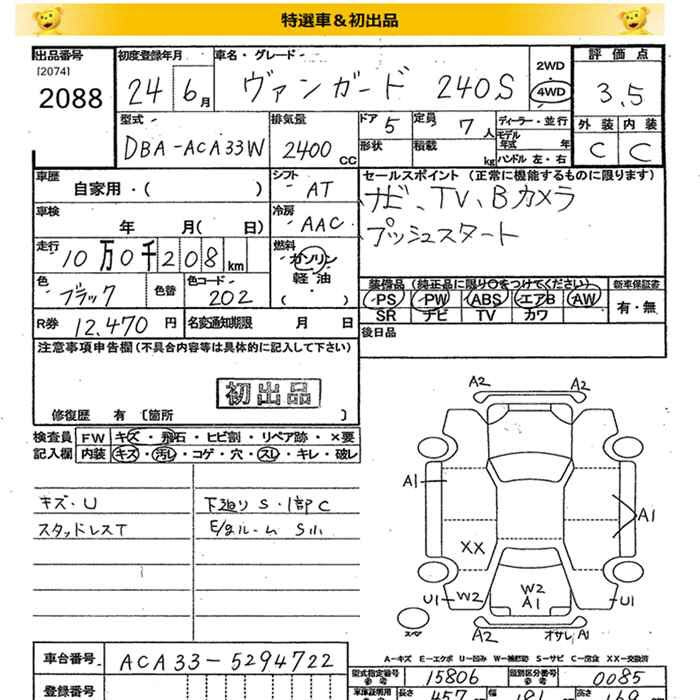 特選車＆初出品
出品番号 初度登録年月 車名・グレード
[2074]
2088
24 6月
ヴァンガード 240S
2WD
4WD
評価点
3.5
型式 排気量 ドア 定員 ディーラー・並行
DBA-ACA33W 2400CC 5 7人
モデル年式 年
形状 積載 kg ハンドル 左・右
外装 内装
C C
車歴 シフト セールスポイント (正常に機能するものに限ります)
自家用・( ) AT
ナビ、TV、Bカメラ
プッシュスタート
車検 冷房
年 月( 日) AAC
走行 燃料
10万0千208km ガソリン
軽油
( )
色 色替 色コード
ブラック 202
装備品 (純正品に限り○をつけてください) 新車保証書
PS PW ABS エアB AW
SR ナビ TV カワ
有・無
R券 12,470円 名変通知期限 月 日
後日品
注意事項申告欄(不具合内容等は具体的に記入して下さい)
初出品
修復歴 有 〔箇所 〕
検査員 FW キズ・飛石・ヒビ割・リペア跡・×要
記入欄 内装 キズ・汚レ・コゲ・穴・スレ・キレ・破レ
キズ・U 下廻り S・1部C
スタッドレスT E/gルーム S小
A2 A2
A1 A1
XX
U1 W2 W2 A1 U1
スペア A2 オサレ A1
A-キズ E-エクボ U-凹み W-補修跡 S-サビ C-腐食 XX-交換済
車台番号 ACA33-5294722
型式指定番号 15806 類別区分番号 0085
登録番号
長さ 457 幅 181 高さ 169